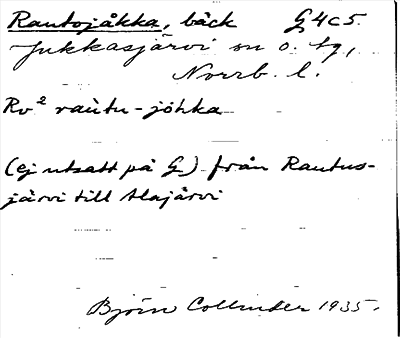 Rautojåkka, bäck G4c5.
Jukkasjärvi sn o. tg,
Norrb. l.
Rv² rau̇tu-jåhka
(ej utsatt på G) från Rautus-
järvi till Alajärvi
Björn Collinder 1935.